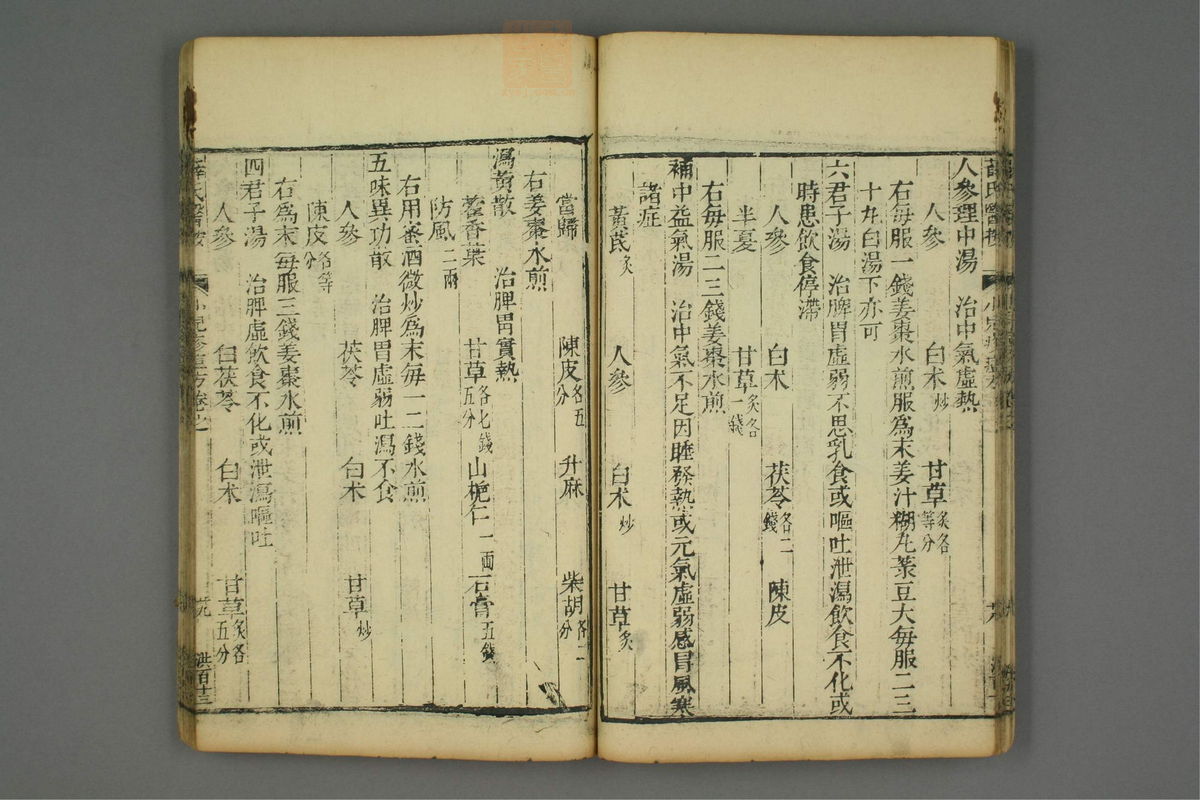 人參理中湯　治中氣虛熱
人參　白术炒　甘草炙各等分
右每服一錢姜棗水煎服爲末姜汁糊丸菉豆大每服二三
十丸白湯下亦可
六君子湯　治脾胃虛弱不思乳食或嘔吐泄瀉飲食不化或
時患飲食停滯
人參　白术　茯苓各二錢　陳皮
半夏　甘草炙各一錢
右每服二三錢姜棗水煎
補中益氣湯　治中氣不足因睡發熱或元氣虛弱感冒風寒
諸症
黃芪炙　人參　白术炒　甘草炙
當歸　陳皮各五分　升麻　柴胡各二分
右姜棗水煎
瀉黃散　治脾胃實熱
藿香葉　甘草各七錢五分　山梔仁一兩　石膏五錢
防風二兩
右用蜜酒微炒爲末每一二錢水煎
五味異功散　治脾胃虛弱吐瀉不食
人參　茯苓　白术　甘草炒
陳皮各等分
右爲末每服三錢姜棗水煎
四君子湯　治脾虛飲食不化或泄瀉嘔吐
人參　白茯苓　白术　甘草炙各五分
薛氏醫按　小兒　方卷之
洪百十三